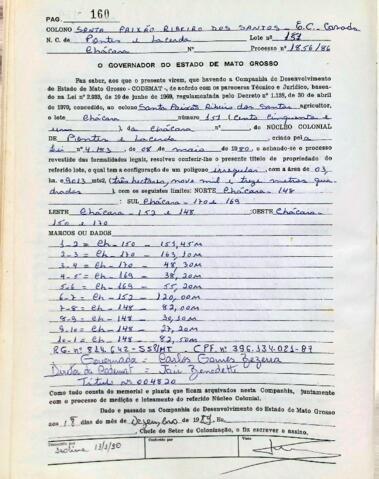 PAG. 160
COLONO SANTA PAIXÃO RIBEIRO DOS SANTOS - E.C. Casada
N. C. de Pontes e Lacerda Lote nº 151
Chácara Nº Processo nº 1856/86
O GOVERNADOR DO ESTADO DE MATO GROSSO
Faz saber, aos que o presente virem, que havendo a Companhia de Desenvolvimento
do Estado de Mato Grosso - CODEMAT -, de acordo com os pareceres Técnico e Jurídico, basea-
do na Lei nº 2.933, de 19 de junho de 1969, regulamentada pelo Decreto nº 1.138, de 30 de abril de
1970, concedido, ao colono Santa Paixão Ribeiro dos Santos agricultor,
o lote Chácara número 151 (Cento cinquenta e
um) da Chácara do NÚCLEO COLONIAL
DE Pontes e Lacerda criado pela
Lei nº 4.183 de 08 de maio de 1980, e achando-se o processo
revestido das formalidades legais, resolveu conferir-lhe o presente título de propriedade do
referido lote, o qual tem a configuração de um polígono irregular, com a área de 03
ha. 9013 mts2, (três hectares, nove mil e treze metros qua
drados) com os seguintes limites: NORTE Chácara - 148
: SUL Chácara - 170 e 169
LESTE Chácara - 152 e 148 :OESTE Chácara -
150 e 170
MARCOS OU DADOS
1-2 = Ch - 150 - 153,45M
2-3 = Ch - 170 - 163,10M
3-4 = Ch - 170 - 48,30M
4-5 = Ch - 169 - 38,20M
5-6 = Ch - 169 - 55,20M
6-7 = Ch - 152 - 120,00M
7-8 = Ch - 148 - 82,00M
8-9 = Ch - 148 - 30,10M
9-10 = Ch - 148 - 27,20M
10-1 = Ch - 148 - 82,50M
RG. nº 814.642-SSP/MT. CPF. nº 396.134.021-87
Governador = Carlos Gomes Bezerra
Diretor da Codemat = Jair Benedetti
Título nº 004820
Como tudo consta do memorial e planta que ficam arquivados nesta Companhia, juntamente
com o processo de medição e loteamento do referido Núcleo Colonial.
Dado e passado na Companhia de Desenvolvimento do Estado de Mato Grosso
aos 18 dias do mês de Dezembro de 1989.
Chefe do Setor de Colonização, o fiz escrever e assino.
Conferido por
Visto
13/3/90